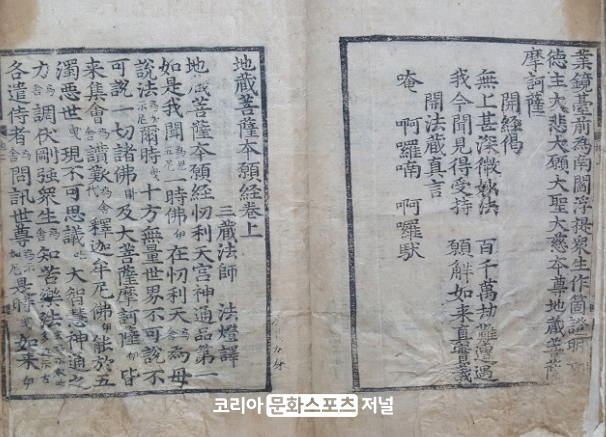 業鏡臺前為南閻浮提衆生作箇證明功
德主大悲大願大聖大慈本尊地藏菩薩
摩訶薩
開經偈
無上甚深微妙法 百千萬劫難遭遇
我今聞見得受持 願解如來真實義
開法藏真言
唵 啊囉喃 啊囉馱
地藏菩薩本願經卷上
三藏法師 法燈譯
地藏菩薩本願經忉利天宮神通品第一
如是我聞 一時佛 在忉利天 為母
說法 爾時 十方無量世界不可說不
可說一切諸佛 及大菩薩摩訶薩 皆
來集會 讃歎 釋迦牟尼佛 能於五
濁惡世 現不可思議 大智慧神通之
力 調伏剛強衆生 知苦樂法
各遣侍者 問訊世尊 是時 如来
코리아 문화스포츠 저널